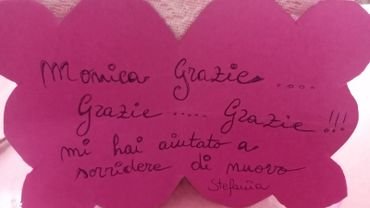 Monica Grazie....
Grazie..... Grazie!!!
mi hai aiutato a
sorridere di nuovo
Stefania